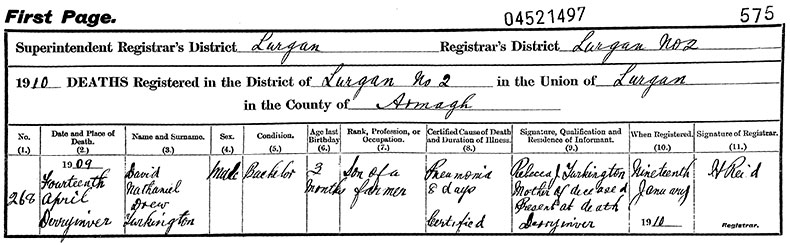 First Page. 04521497 575
Superintendent Registrar's District Lurgan Registrar's District Lurgan No 2
1910 DEATHS Registered in the District of Lurgan No 2 in the Union of Lurgan
in the County of Armagh
No. (1.) Date and Place of Death. (2.) Name and Surname. (3.) Sex. (4.) Condition. (5.) Age last Birthday (6.) Rank, Profession, or Occupation. (7.) Certified Cause of Death and Duration of Illness. (8.) Signature, Qualification and Residence of Informant. (9.) When Registered. (10.) Signature of Registrar. (11.)
268
1909
Fourteenth
April
Derryinver
David
Nathaniel
Drew
Turkington
Male
Bachelor
3
months
Son of a
farmer
Pneumonia
8 days
Certified
Rebecca J Turkington
Mother of deceased
Present at death
Derryinver
Nineteenth
January
1910
H Reid
Registrar.